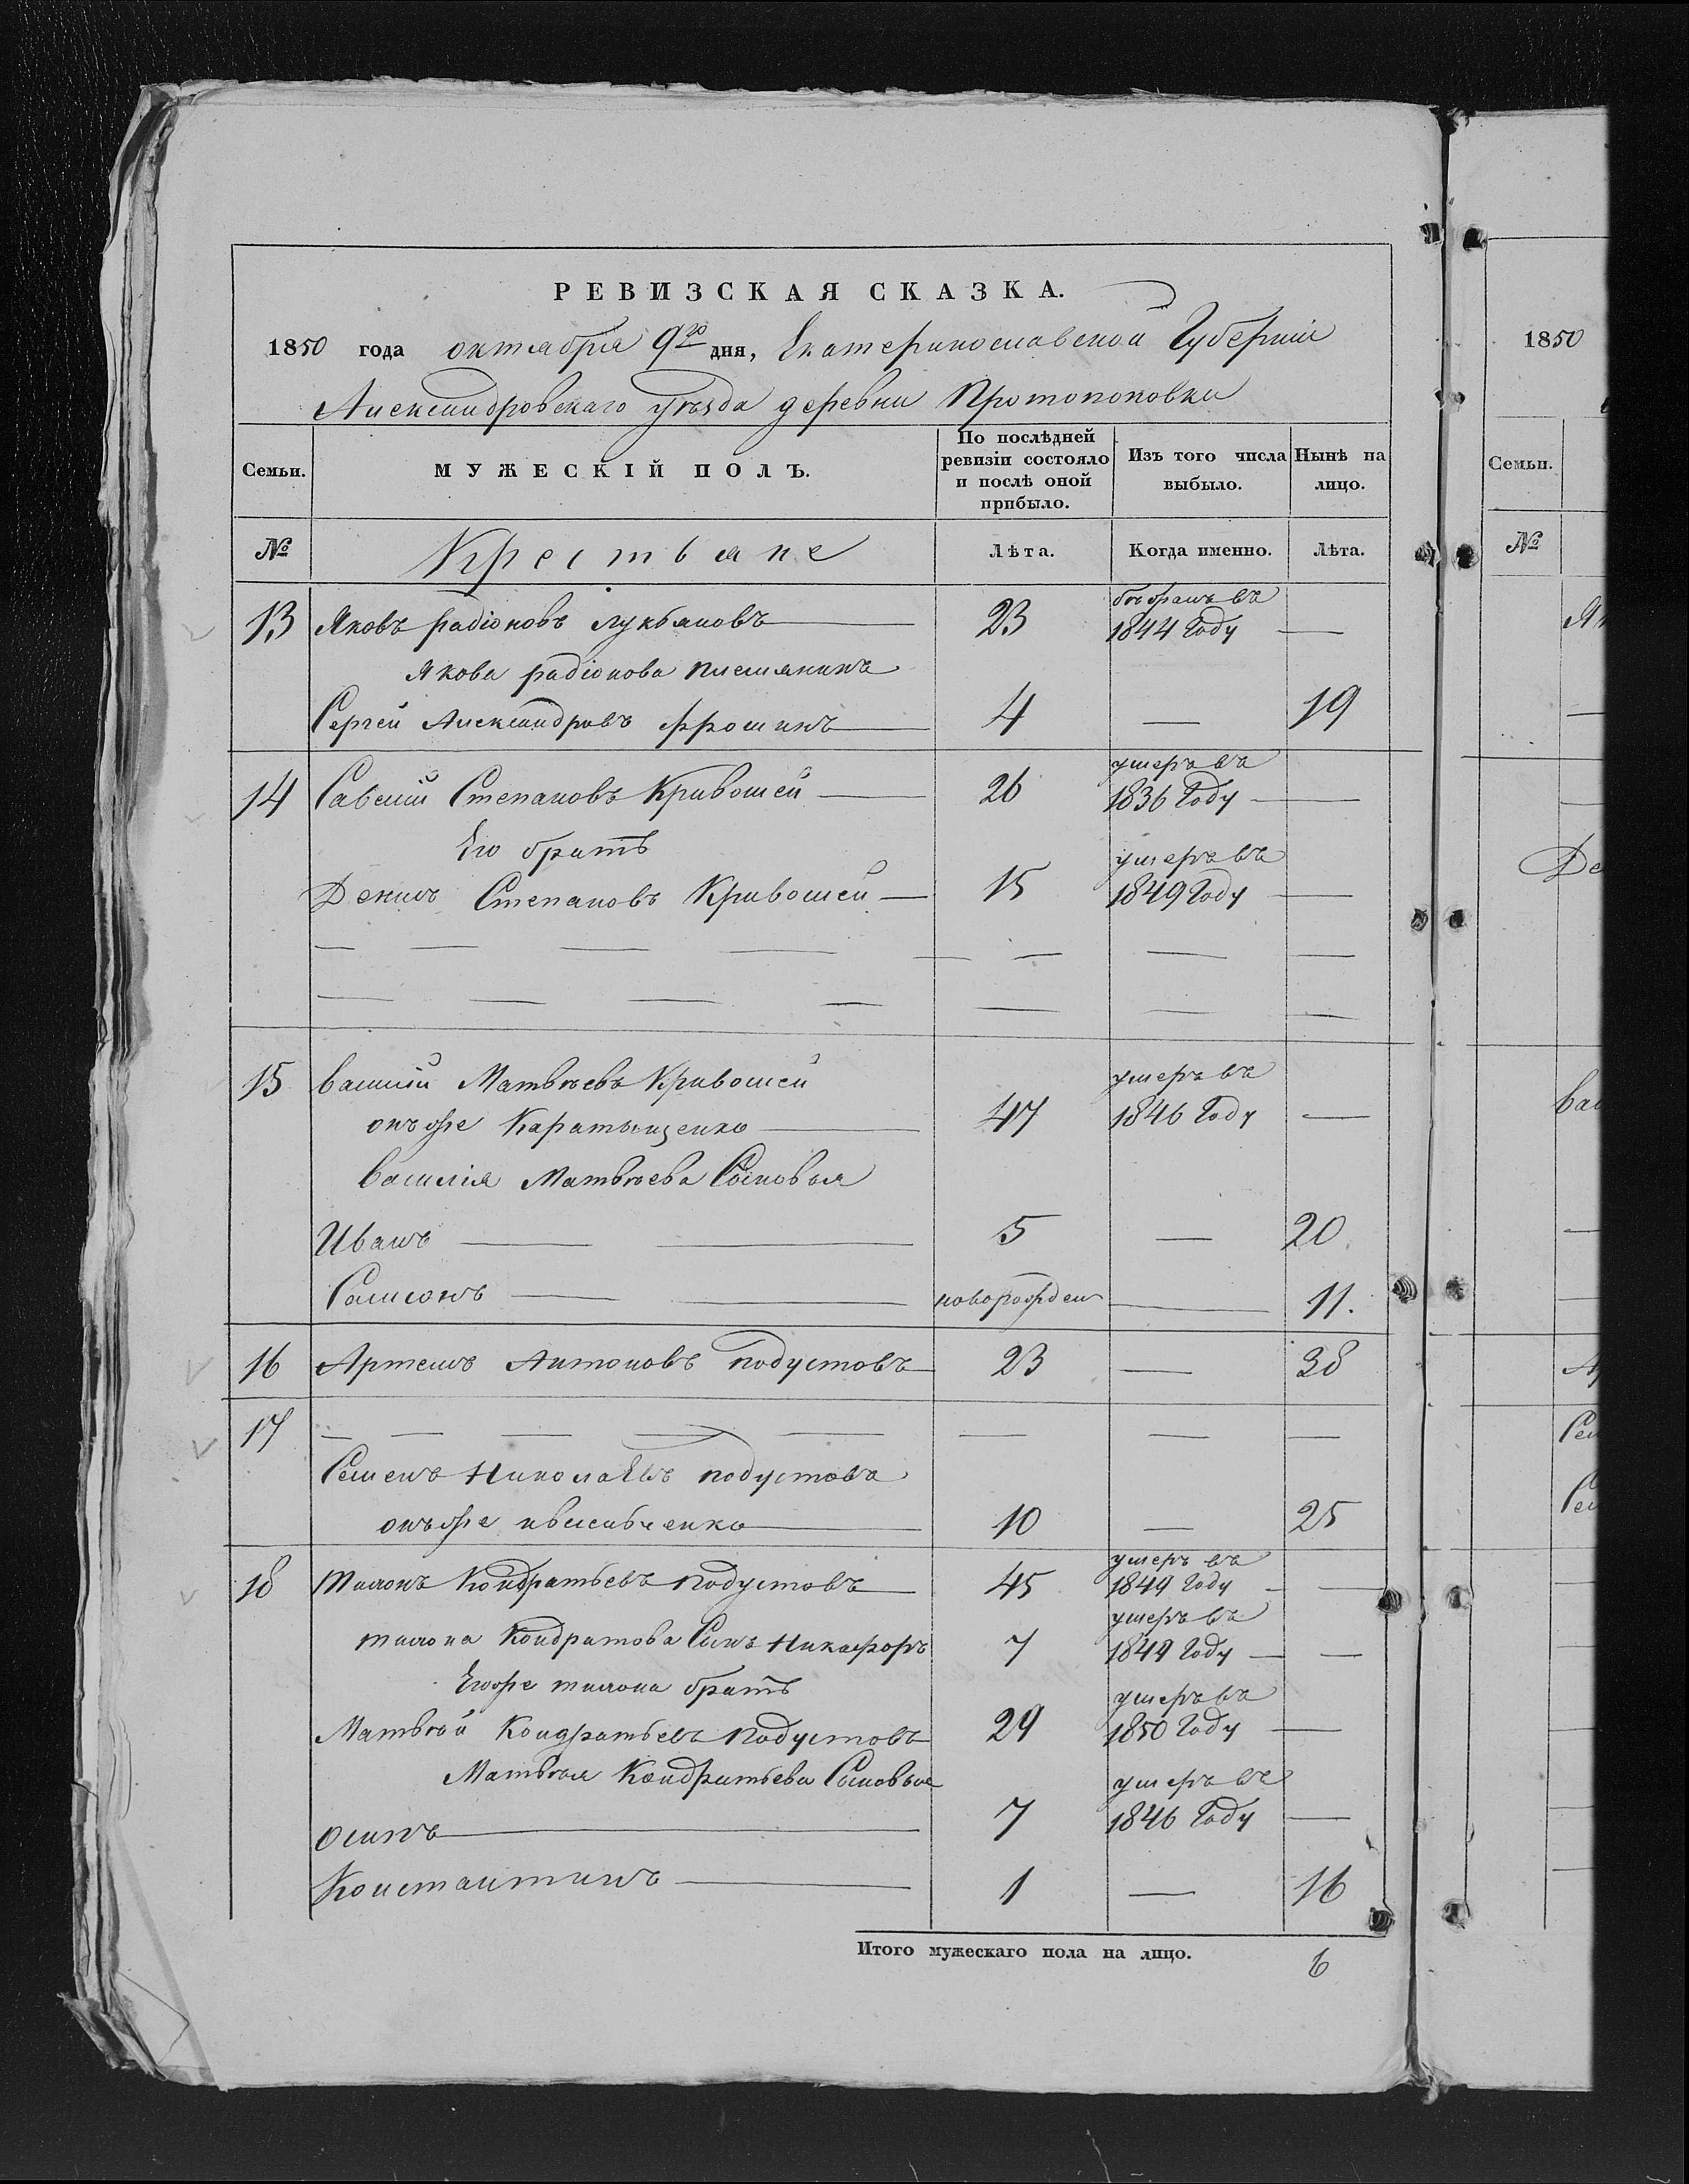 РЕВИЗСКАЯ СКАЗКА.
1850 года октября 9го дня, Екатеринославской Губерніи
Александровскаго уѣзда деревни Протопоповки
Семьи. МУЖЕСКІЙ ПОЛЪ. По послѣдней ревизіи состояло и послѣ оной прибыло. Изъ того числа выбыло. Нынѣ на лицо.
№ Крестьяне Лѣта. Когда именно. Лѣта.
13 Яковъ радіоновъ лукьяновъ 23 въ 1844 Году —
Якова радіонова племянникъ
Сергей Александровъ 4 — 19
14 Савелій Степановъ Кривошей 26 умеръ въ 1836 Году —
Его братъ
Степановъ Кривошей 15 умеръ въ 1849 Году —
15 василій Матвѣевъ Кривошей
онъ же 47 умеръ въ 1846 Году —
василія Матвѣева Сыновья
Иванъ 5 — 20
Самсонъ новорожден — 11.
16 Артемъ Антоновъ подустовъ 23 — 38
17
Семенъ НиколаЕвъ подустовъ
онъ же 10 — 25
18 Кондратьевъ подустовъ 45 умеръ въ 1849 Году —
Кондратова Сынъ Никифоръ 7 умеръ въ 1849 Году —
Егоже братъ
Матвѣй Кондратьевъ подустовъ 29 умеръ въ 1850 Году —
Матвѣя Кондратьева Сыновья
осипъ 7 умеръ въ 1846 Году —
Константинъ 1 — 16
Итого мужескаго пола на лицо. 6
1850
Семьи.
№